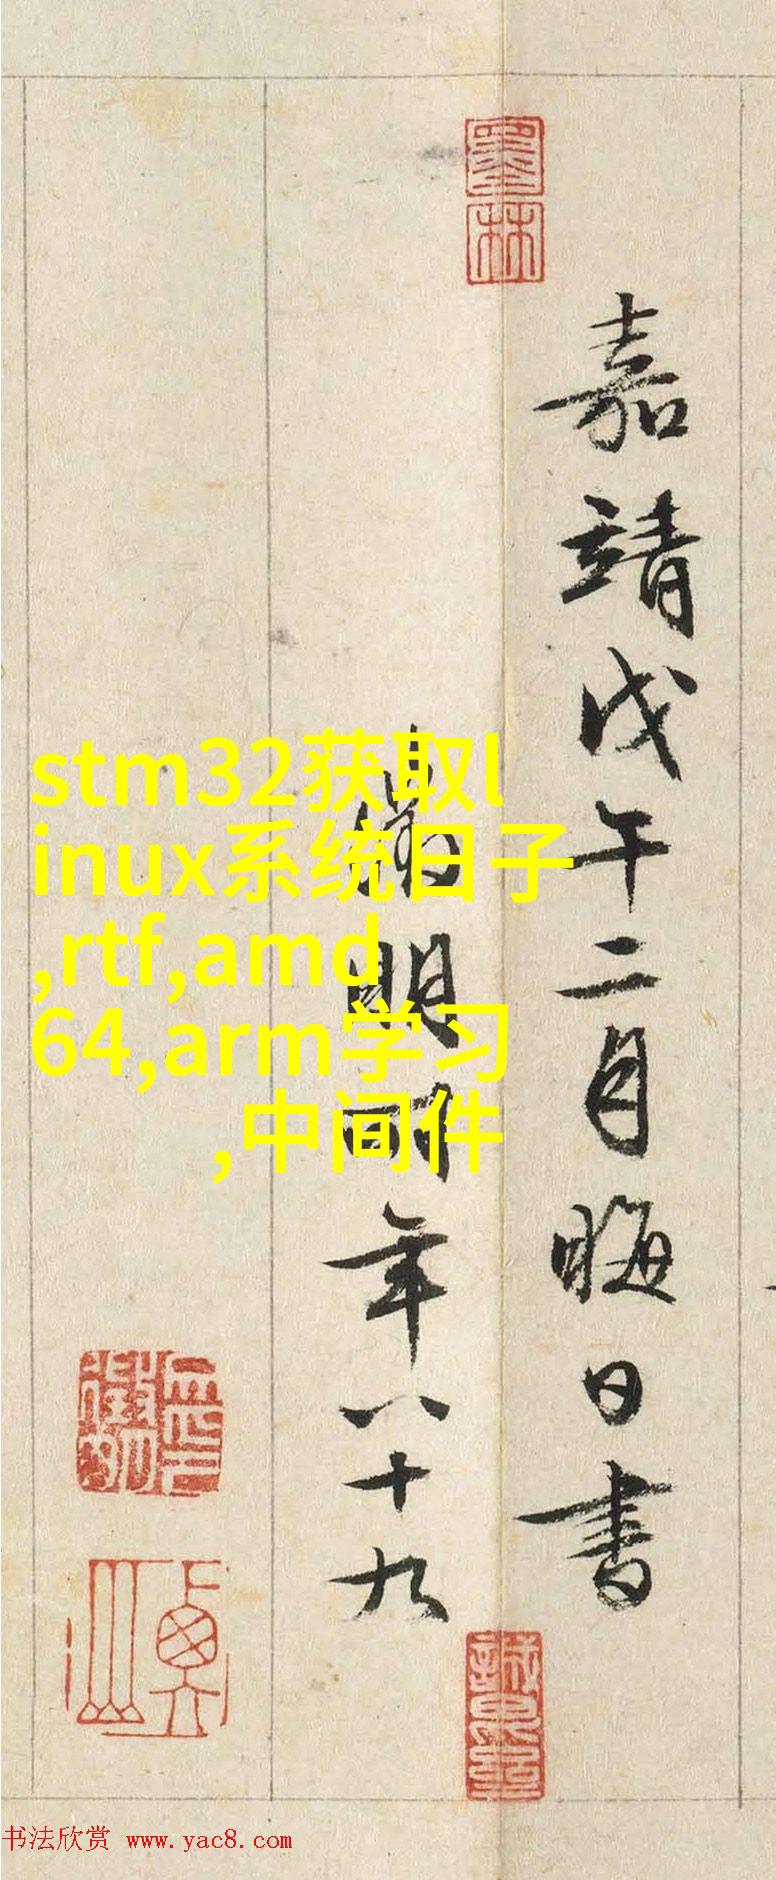 墨林
嘉靖戊午二月晦日書
徵明時年八十九
stm32获取l
inux系统日子
,rtf,amd
64,arm学习
,中间件
书法欣赏 www.yac8.com